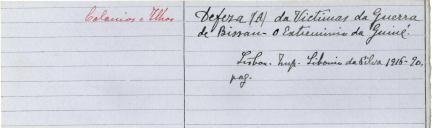 Colonias e Ilhas
Defeza (A) da Victimas da Guerra
de Bissau - O Extreminio da Guiné.
Lisboa. Imp. Libanio da Silva 1916 - 90.
pag.